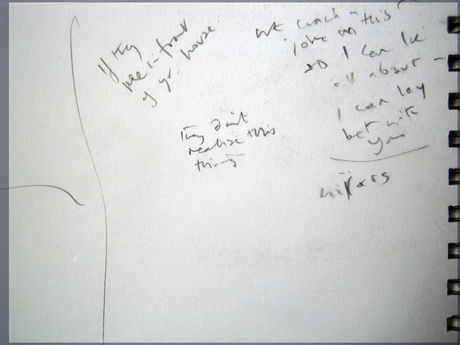 If they
pee in front
of yr. house.
we crack a
joke on this
I can
all about
I can lay
bet with
you
They don't
realize this
things